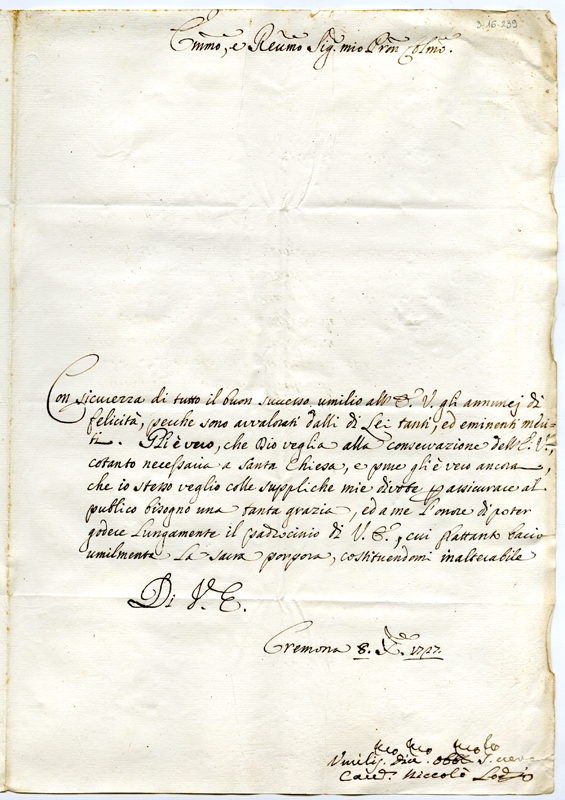 3-16-239
Emmo, e Reumo Sig. mio Pron Colmo.
Con sicurezza di tutto il buon successo umilio all' E. V. gli annunej di
felicità, perche sono avvalorati dalli di Lei tanti, ed eminenti meri-
ti. Gli è vero, che Dio veglia alla conservazione dell' E. V.,
cotanto necessaria a Santa Chiesa, e pure gli è vero ancora,
che io stesso veglio colle suppliche mie divote p assicurare al
publico bisogno una tanta grazia, ed a me l'onore di poter
godere lungamente il padrocinio di V. E., cui frattanto bacio
umilmente la sacra porpora, costituendomi inalterabile
Di V. E.
Cremona 8. Xbre 1727.
Umilis. Divo. Obbl. Serv
Niccolò